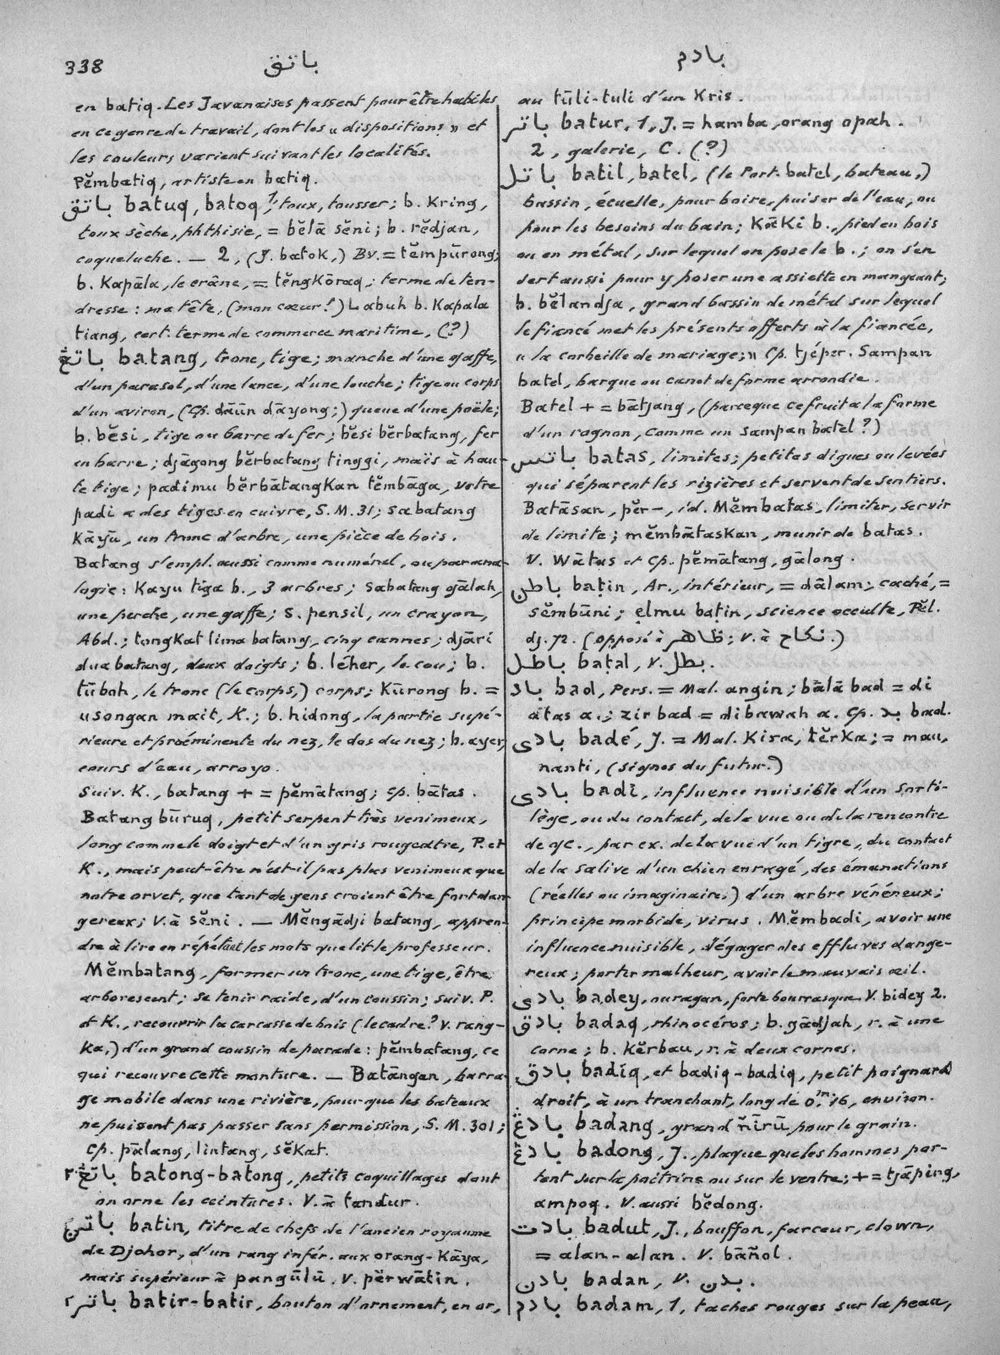 338
باتق
بادم
en batiq. Les Javanaises passent pour être habiles
en ce genre de travail, dont les « dispositions » et
les couleurs varient suivant les localités.
Pĕmbatiq, artiste en batiq.
باتق batuq, batoq, 1, toux, tousser; b. Kring,
toux sèche, phthisie, = bĕlā sĕni; b. rĕdjan,
coqueluche. — 2, (J. batok,) Bv. = tĕmpūrong;
b. Kapāla, le crâne, = tĕngkōraq; terme de ten-
dresse: ma tête, (mon cœur!) Labuh b. Kapala
tiang, cert. terme de commerce maritime, (?)
باتڠ batang, tronc, tige; manche d'une gaffe,
d'un parasol, d'une lance, d'une louche; tige ou corps
d'un aviron, (Cp. dāūn dāyong;) queue d'une poêle;
b. bĕsi, tige ou barre de fer; bĕsi bĕrbatang, fer
en barre; djāgong bĕrbatang tinggi, maïs à hau-
te tige; padimu bĕrbātangkan tĕmbāga, votre
padi a des tiges en cuivre, S. M. 31; sabatang
Kāyū, un tronc d'arbre, une pièce de bois.
Batang s'empl. aussi comme numéral, ou par ana-
logie: Kayu tiga b., 3 arbres; Sabatang gālah,
une perche, une gaffe; S. pensil, un crayon,
Abd.; tongkat lima batang, cinq cannes; djāri
dua batang, deux doigts; b. léher, le cou; b.
tūboh, le tronc (le corps,) corps; Kūrong b. =
usongan mait, K.; b. hidong, la partie supé-
rieure et proéminente du nez, le dos du nez; b. ayer,
cours d'eau, arroyo.
Suiv. K., batang + = pĕmātang; cp. bātas.
Batang būruq, petit serpent très venimeux,
long comme le doigt et d'un gris rougeâtre, P. et
K., mais peut-être n'est-il pas plus venimeux que
notre orvet, que tant de gens croient être fort dan-
gereux; V. à sĕni. — Mĕngādji batang, appren-
dre à lire en répétant les mots que lit le professeur.
Mĕmbatang, former un tronc, une tige, être
arborescent; se tenir raide, d'un coussin; suiv. P.
et K., recouvrir la carcasse de bois (le cadre? V. rang-
Ka,) d'un grand coussin de parade: pĕmbatang, ce
qui recouvre cette monture. — Batāngan, barra-
ge mobile dans une rivière, pour que les bateaux
ne puissent pas passer sans permission, S. M. 301;
Cp. pālang, lintang, sĕkat.
باتڠ٢ batong-batong, petits coquillages dont
on orne les ceintures. V. à tandur.
باتن batin, titre de chefs de l'ancien royaume
de Djohor, d'un rang infér. aux orang-Kāya,
mais supérieur à pangūlū. V. pĕrwātin.
باتر٢ batir-batir, bouton d'ornement, en or,
au tūli-tuli d'un Kris.
باتر batur, 1, J. = hamba, orang opah.
2, galerie, C. (?)
باتل batil, batel, (le Port. batel, bateau,)
bassin, écuelle, pour boire, puiser de l'eau, ou
pour les besoins du bain; Kāki b., pied en bois
ou en métal, sur lequel on pose le b.; on s'en
sert aussi pour y poser une assiette en mangeant;
b. bĕlandja, grand bassin de métal sur lequel
le fiancé met les présents offerts à la fiancée,
« la corbeille de mariage; » Cp. tjéper. Sampan
batel, barque ou canot de forme arrondie.
Batel + = bātjang, (parce que ce fruit a la forme
d'un rognon, comme un sampan batel?)
باتس batas, limites; petites digues ou levées
qui séparent les rizières et servent de sentiers.
Batāsan, pĕr—, id. Mĕmbatas, limiter, servir
de limite; mĕmbātaskan, munir de batas.
V. Wātas et Cp. pĕmātang, gālong.
باطن baṭin, Ar., intérieur, = dālam; caché, =
sĕmbūni; ęlmu baṭin, science occulte, Pĕl.
dj. 72. (opposé à ظاهر; V. à نكاح.)
باطل baṭal, V. بطل.
باد bad, Pers. = Mal. angin; bālā bad = di
ātas a.; zir bad = dibawah a. Cp. بد bad.
بادى badé, J. = Mal. Kira, tĕrka; = mau,
nanti, (signes du futur.)
بادى badi, influence nuisible d'un sorti-
lège, ou du contact, de la vue ou de la rencontre
de qc., par ex. de la vue d'un tigre, du contact
de la salive d'un chien enragé, des émanations
(réelles ou imaginaires,) d'un arbre vénéneux;
principe morbide, virus. Mĕmbadi, avoir une
influence nuisible, dégager des effluves dange-
reux; porter malheur, avoir le mauvais œil.
بادى badey, ouragan, forte bourrasque. V. bidey 2.
بادق badaq, rhinocéros; b. gādjah, r. à une
corne; b. Kĕrbau, r. à deux cornes.
بادق badiq, et badiq-badiq, petit poignard
droit, à un tranchant, long de 0,ᵐ16, environ.
بادڠ badang, grand ñīrū pour le grain.
بادڠ badong, J., plaque que les hommes por-
tent sur la poitrine ou sur le ventre; + = tjāping,
ampoq. V. aussi bĕdong.
بادت badut, J., bouffon, farceur, clown,
= alan-alan. V. bāñol.
بادن badan, V. بدن.
بادم badam, 1, taches rouges sur la peau,